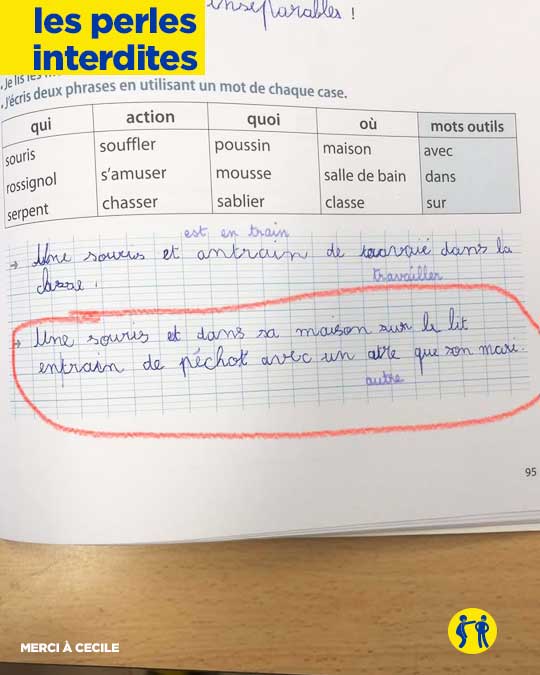 les perles
interdites
inséparables !
. Je lis les
. J'écris deux phrases en utilisant un mot de chaque case.
qui action quoi où mots outils
souris souffler poussin maison avec
rossignol s'amuser mousse salle de bain dans
serpent chasser sablier classe sur
est en train
→ Une souris et antrain de dans la
travailler
classe.
→ Une souris et dans sa maison sur le lit
entrain de péchot avec un atre que son mari.
autre
95
MERCI À CECILE